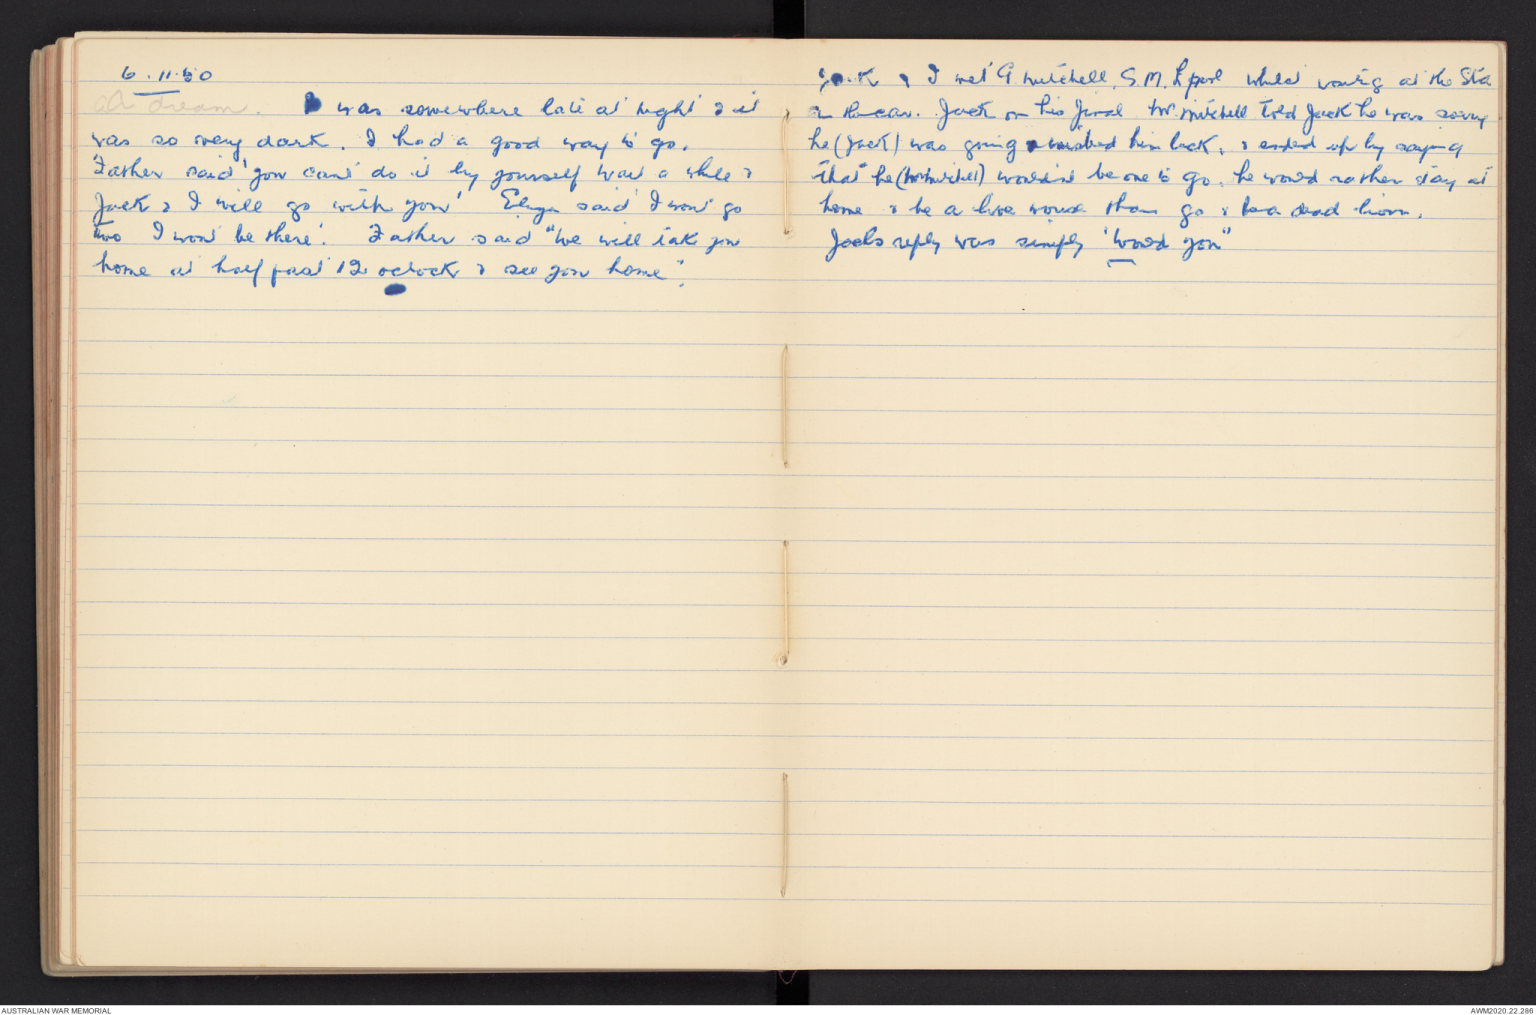 6.11.50
A dream. I was somewhere late at night & it
was so very dark. I had a good way to go.
Father said 'you can't do it by yourself wait a while &
Jack & I will go with you' said I won't go
two I won't be there'. Father said "We will take you
home at half past 12 oclock & see you home".
Jack & I met G Mitchell. S.M. L'pool whilst waiting at the Sta
in the car. Jack on his final Mr. Mitchell told Jack he was sorry
he (Jack) was going & wished him luck, & ended up by saying
that he (Mr Mitchell) wouldn't be one to go. he would rather stay at
home & be a live mouse than go & be a dead lion.
Jacks reply was simply 'Would you"
AUSTRALIAN WAR MEMORIAL
AWM2020.22.286